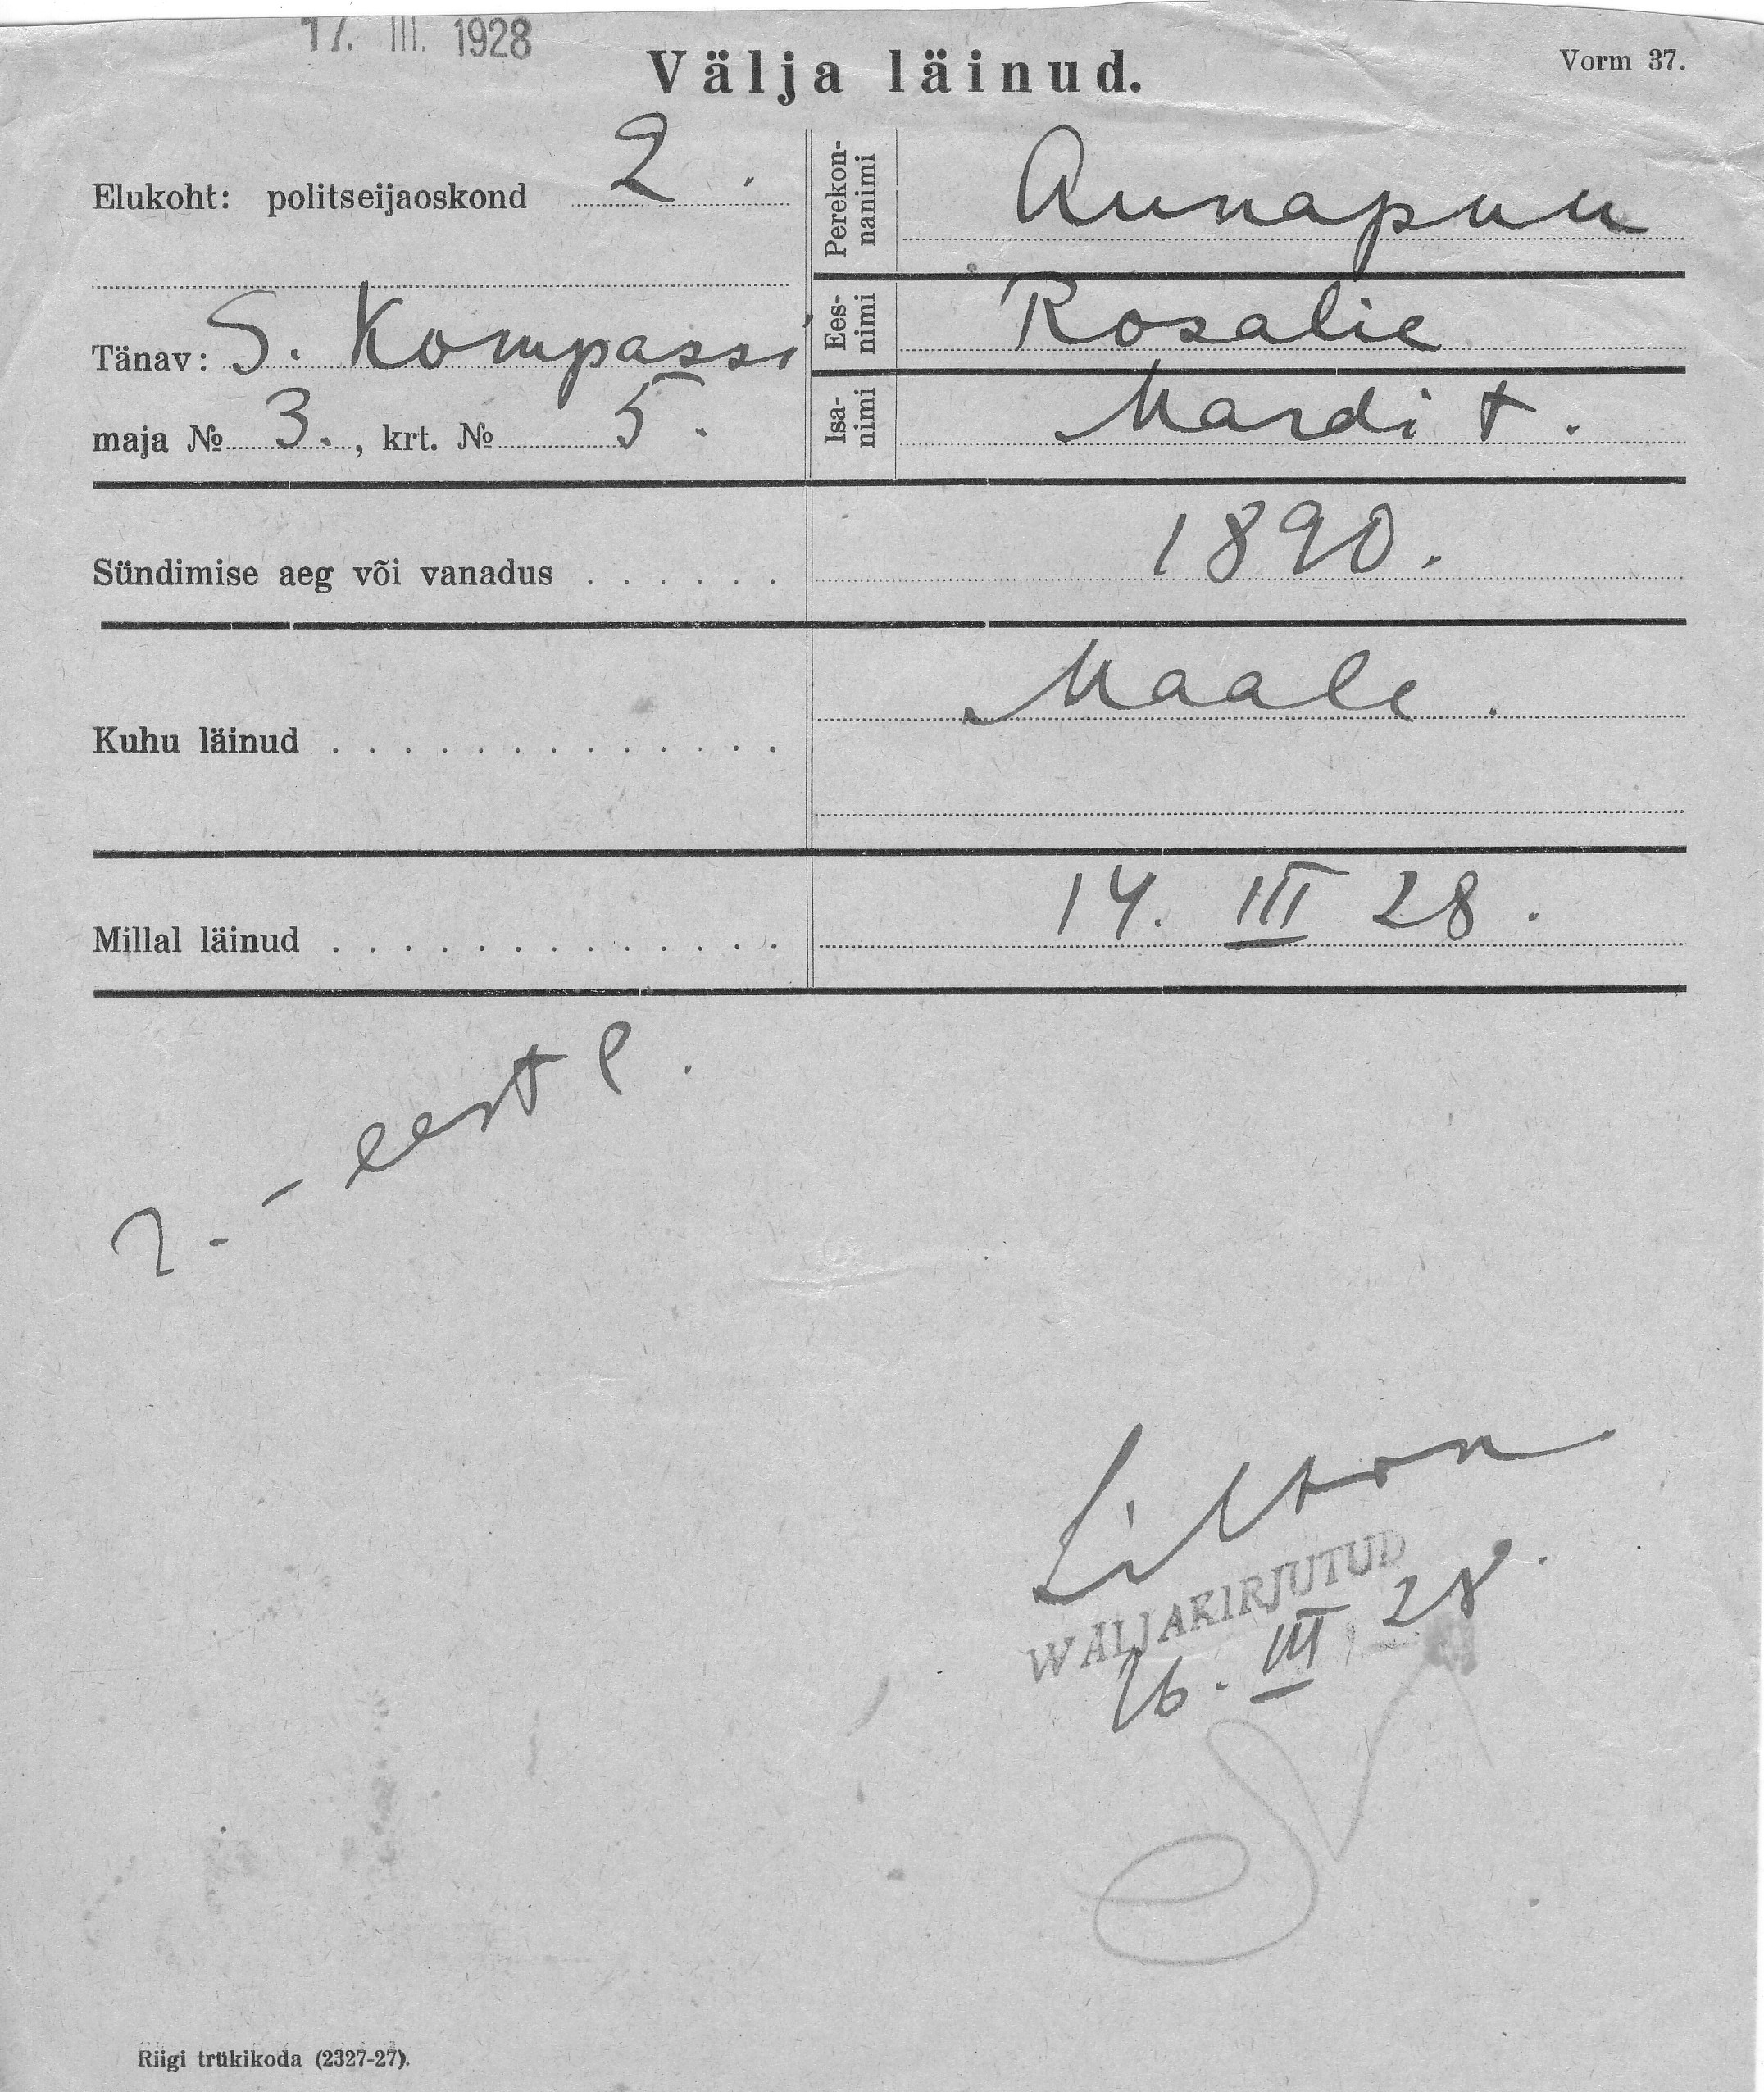 17. III. 1928
Välja läinud.
Vorm 37.
Elukoht: politseijaoskond 2.
Tänav: S. Kompassi
maja № 3., krt. № 5.
Perekon-
nanimi
Annapuu
Ees-
nimi
Rosalie
Isa-
nimi
Mardi t.
Sündimise aeg või vanadus . . . . . . 1890.
Kuhu läinud . . . . . . . . . . . . . Maale.
Millal läinud . . . . . . . . . . . . . 14. III 28.
WÄLJAKIRJUTUD
26. III 28.
Riigi trükikoda (2327-27).